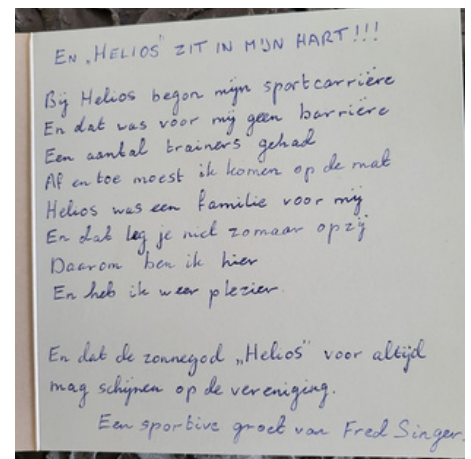 En „HELIOS" ZIT IN MIJN HART!!!
Bij Helios begon mijn sportcarrière
En dat was voor mij geen barrière
Een aantal trainers gehad
Af en toe moest ik komen op de mat
Helios was een familie voor mij
En dat leg je niet zomaar opzij
Daarom ben ik hier
En heb ik weer plezier.
En dat de zonnegod „Helios" voor altijd
mag schijnen op de vereniging.
Een sportive groet van Fred Singer.